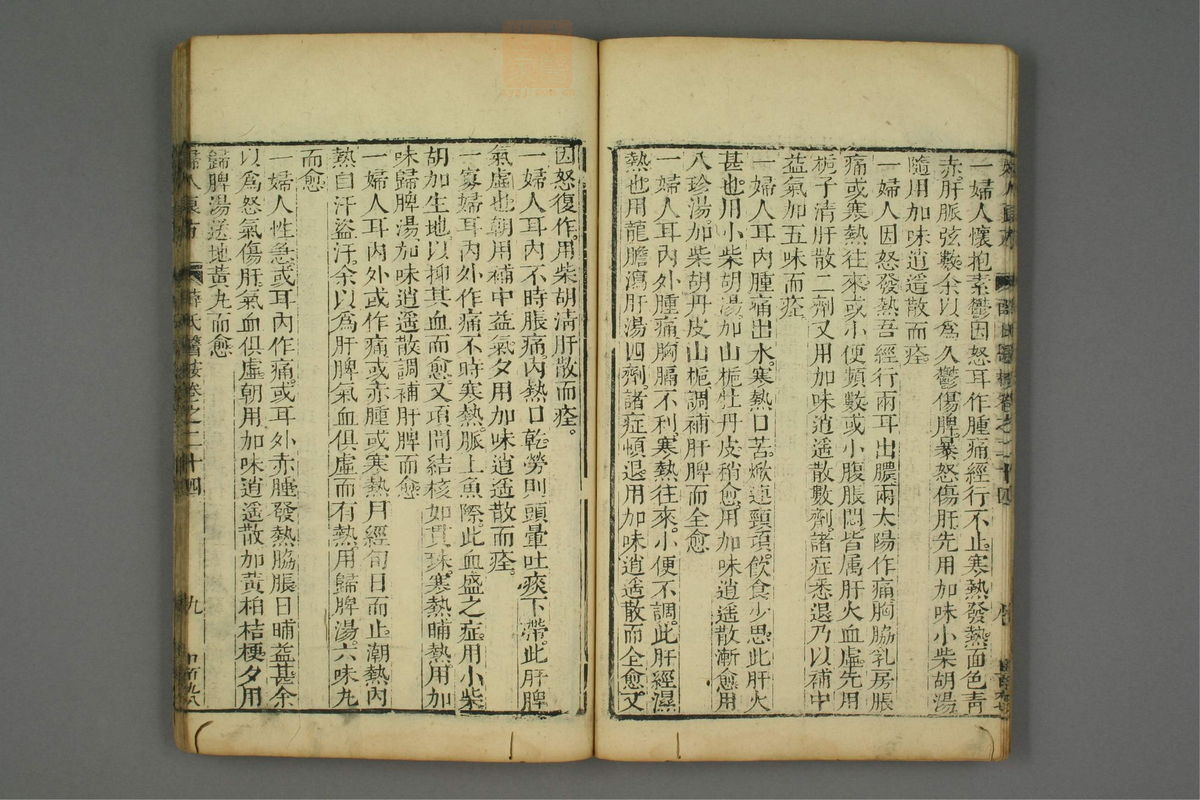 一婦人懷抱素鬱因怒耳作腫痛經行不止寒熱發熱面色青
赤肝脈弦數余以爲久鬱傷脾暴怒傷肝先用加味小柴胡湯
隨用加味逍遥散而痊
一婦人因怒發熱吾經行兩耳出膿兩太陽作痛胸脇乳房脹
痛或寒熱往來或小便頻數或小腹脹悶皆属肝火血虛先用
栀子清肝散二劑又用加味逍遥散數劑諸症悉退乃以補中
益氣加五味而痊
一婦人耳内腫痛出水寒熱口苦焮連頸項飲食少思此肝火
甚也用小柴胡湯加山栀牡丹皮稍愈用加味逍遥散漸愈用
八珍湯加柴胡丹皮山栀調補肝脾而全愈
一婦人耳内外腫痛胸膈不利寒熱往來小便不調此肝經濕
熱也用龍膽瀉肝湯四劑諸症頓退用加味逍遥散而全愈又
因怒復作用柴胡清肝散而痊。
一婦人耳内不時脹痛内熱口乾勞則頭暈吐痰下帶此肝脾
氣虛也朝用補中益氣夕用加味逍遥散而痊。
一寡婦耳内外作痛不時寒熱脈上魚際此血盛之症用小柴
胡加生地以抑其血而愈又項間結核如貫珠寒熱晡熱用加
味歸脾湯加味逍遥散調補肝脾而愈
一婦人耳内外或作痛或赤腫或寒熱月經旬日而止潮熱内
熱自汗盜汗余以爲肝脾氣血俱虛而有熱用歸脾湯六味丸
而愈
一婦人性急或耳内作痛或耳外赤腫發熱脇脹日晡益甚余
以爲怒氣傷肝氣血俱虛朝用加味逍遥散加黄柏桔梗夕用
歸脾湯送地黄丸而愈
婦人良方 薛氏醫按卷之二十四 九